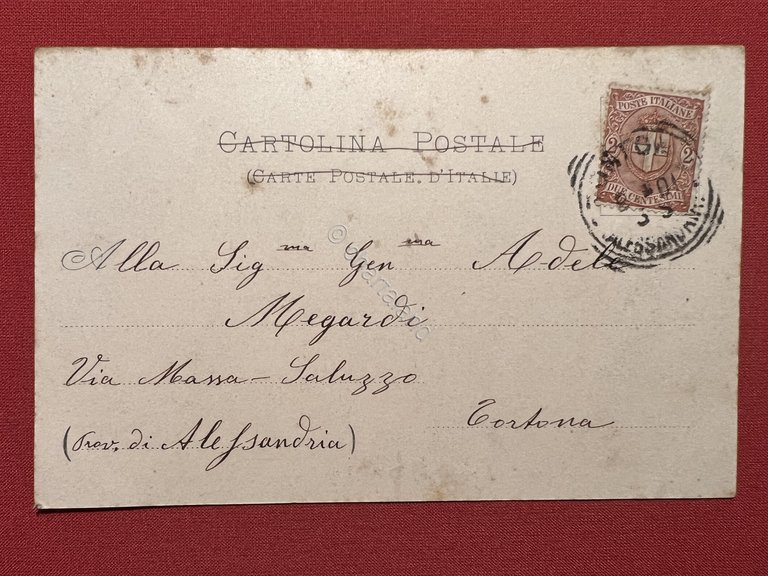 CARTOLINA POSTALE
(CARTE POSTALE D'ITALIE)
POSTE ITALIANE
2 2
DUE CENTESIMI
ALESSANDRIA
Alla Sig.ma Gen.ma Adele
Megardi
Via Massa-Saluzzo
Tortona
(Prov. di Alessandria)